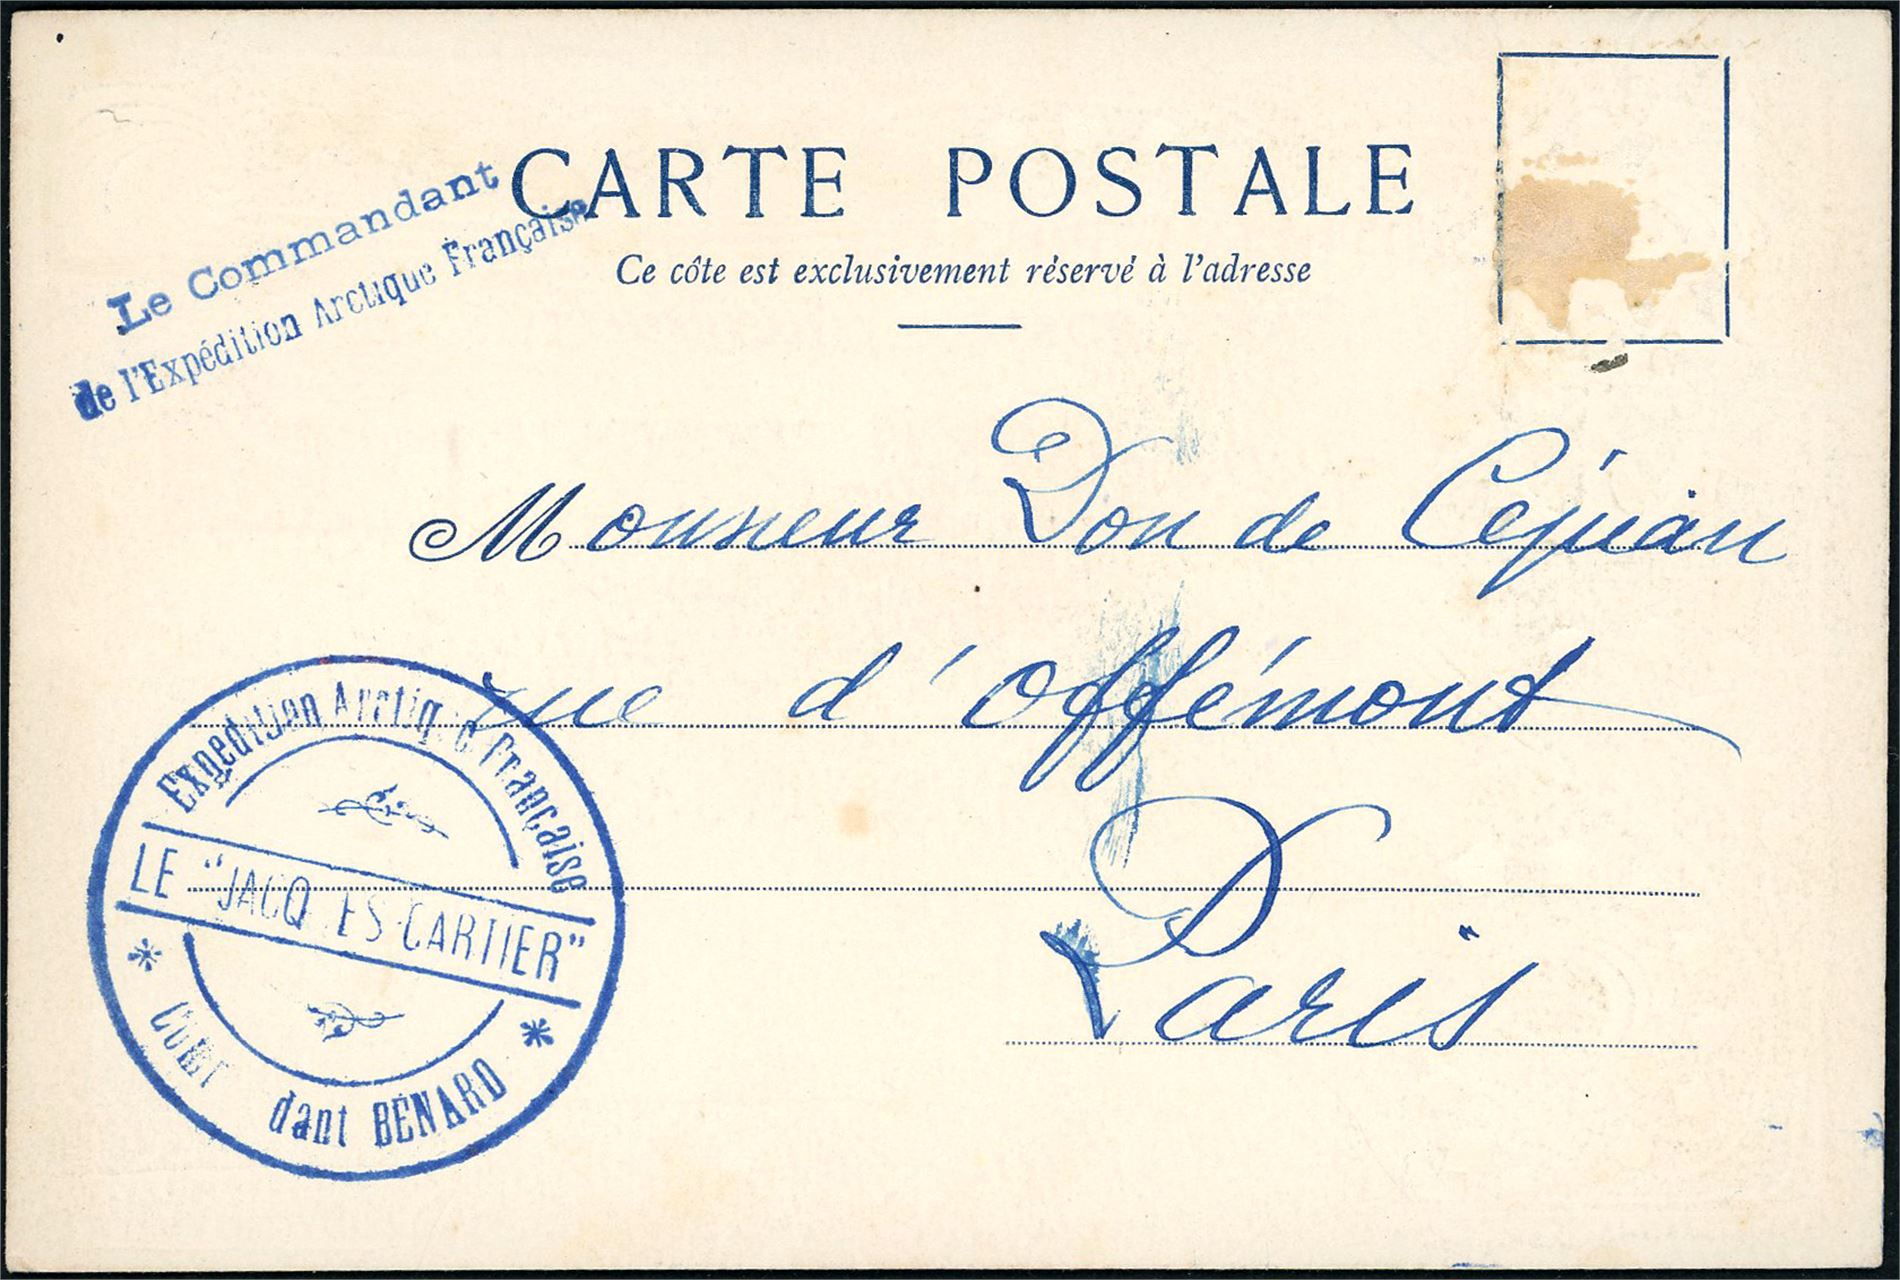 CARTE POSTALE
Ce côte est exclusivement réservé à l'adresse
Le Commandant
de l'Expédition Arctique Française
Monsieur Don de Cépian
rue d'Offémont
Paris
Expédition Arctique Française
LE "JACQUES CARTIER"
Commandant BÉNARD